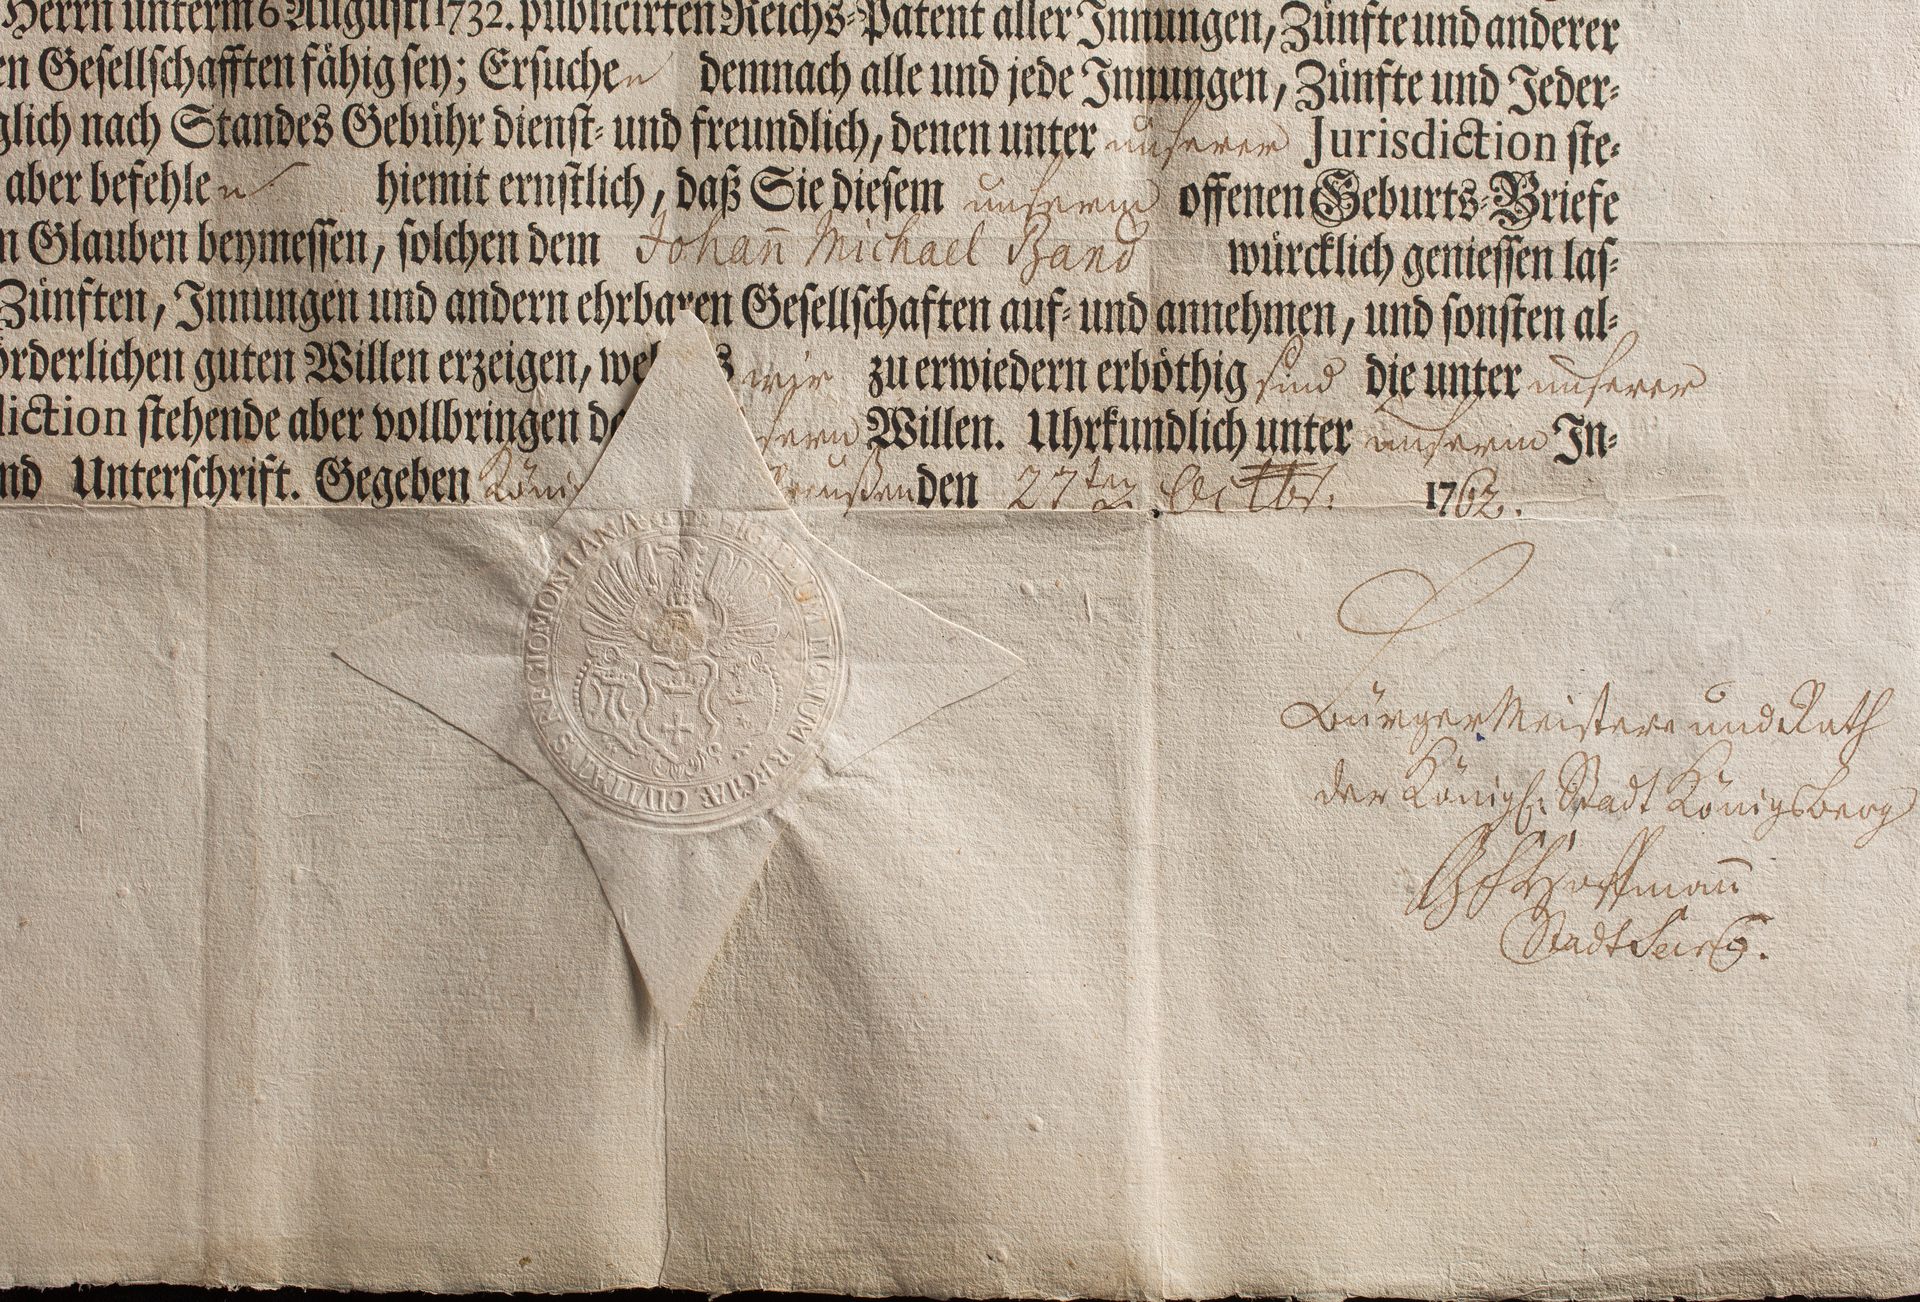 Herrn unterm 6 Augusti 1732. publicirten Reichs-Patent aller Innungen, Zünfte und anderer
en Gesellschafften fähig sey; Ersuchen demnach alle und jede Innungen, Zünfte und Jeder-
glich nach Standes Gebühr dienst- und freundlich, denen unter unserer Jurisdiction ste-
aber befehlen hiemit ernstlich, daß Sie diesem unserm offenen Geburts-Briefe
n Glauben beymessen, solchen dem Johañ Michael Band würcklich geniessen las-
Zünften, Innungen und andern ehrbaren Gesellschaften auf- und annehmen, und sonsten al-
örderlichen guten Willen erzeigen, we s wir zu erwiedern erböthig sind die unter unserer
diction stehende aber vollbringen da sern Willen. Uhrkundlich unter unserm In-
nd Unterschrift. Gegeben Köni reußen den 27ten Octbr. 1762.
SIGILLUM REGIÆ CIVITATIS REGIOMONTANÆ
Bürger Meistere und Rath
der Königl: Stadt Königsberg
Hoffmañ
Stadt Secr.